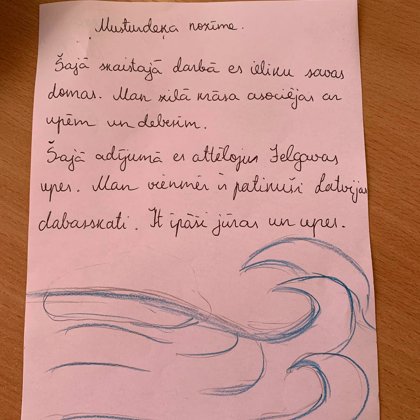 Musturdeķa nozīme.
Šajā skaistajā darbā es ieliku savas
domas. Man zilā krāsa asociējas ar
upēm un debesīm.
Šajā adījumā es attēloju Jelgavas
upes. Man vienmēr ir patikuši Latvijas
dabasskati. It īpaši jūras un upes.